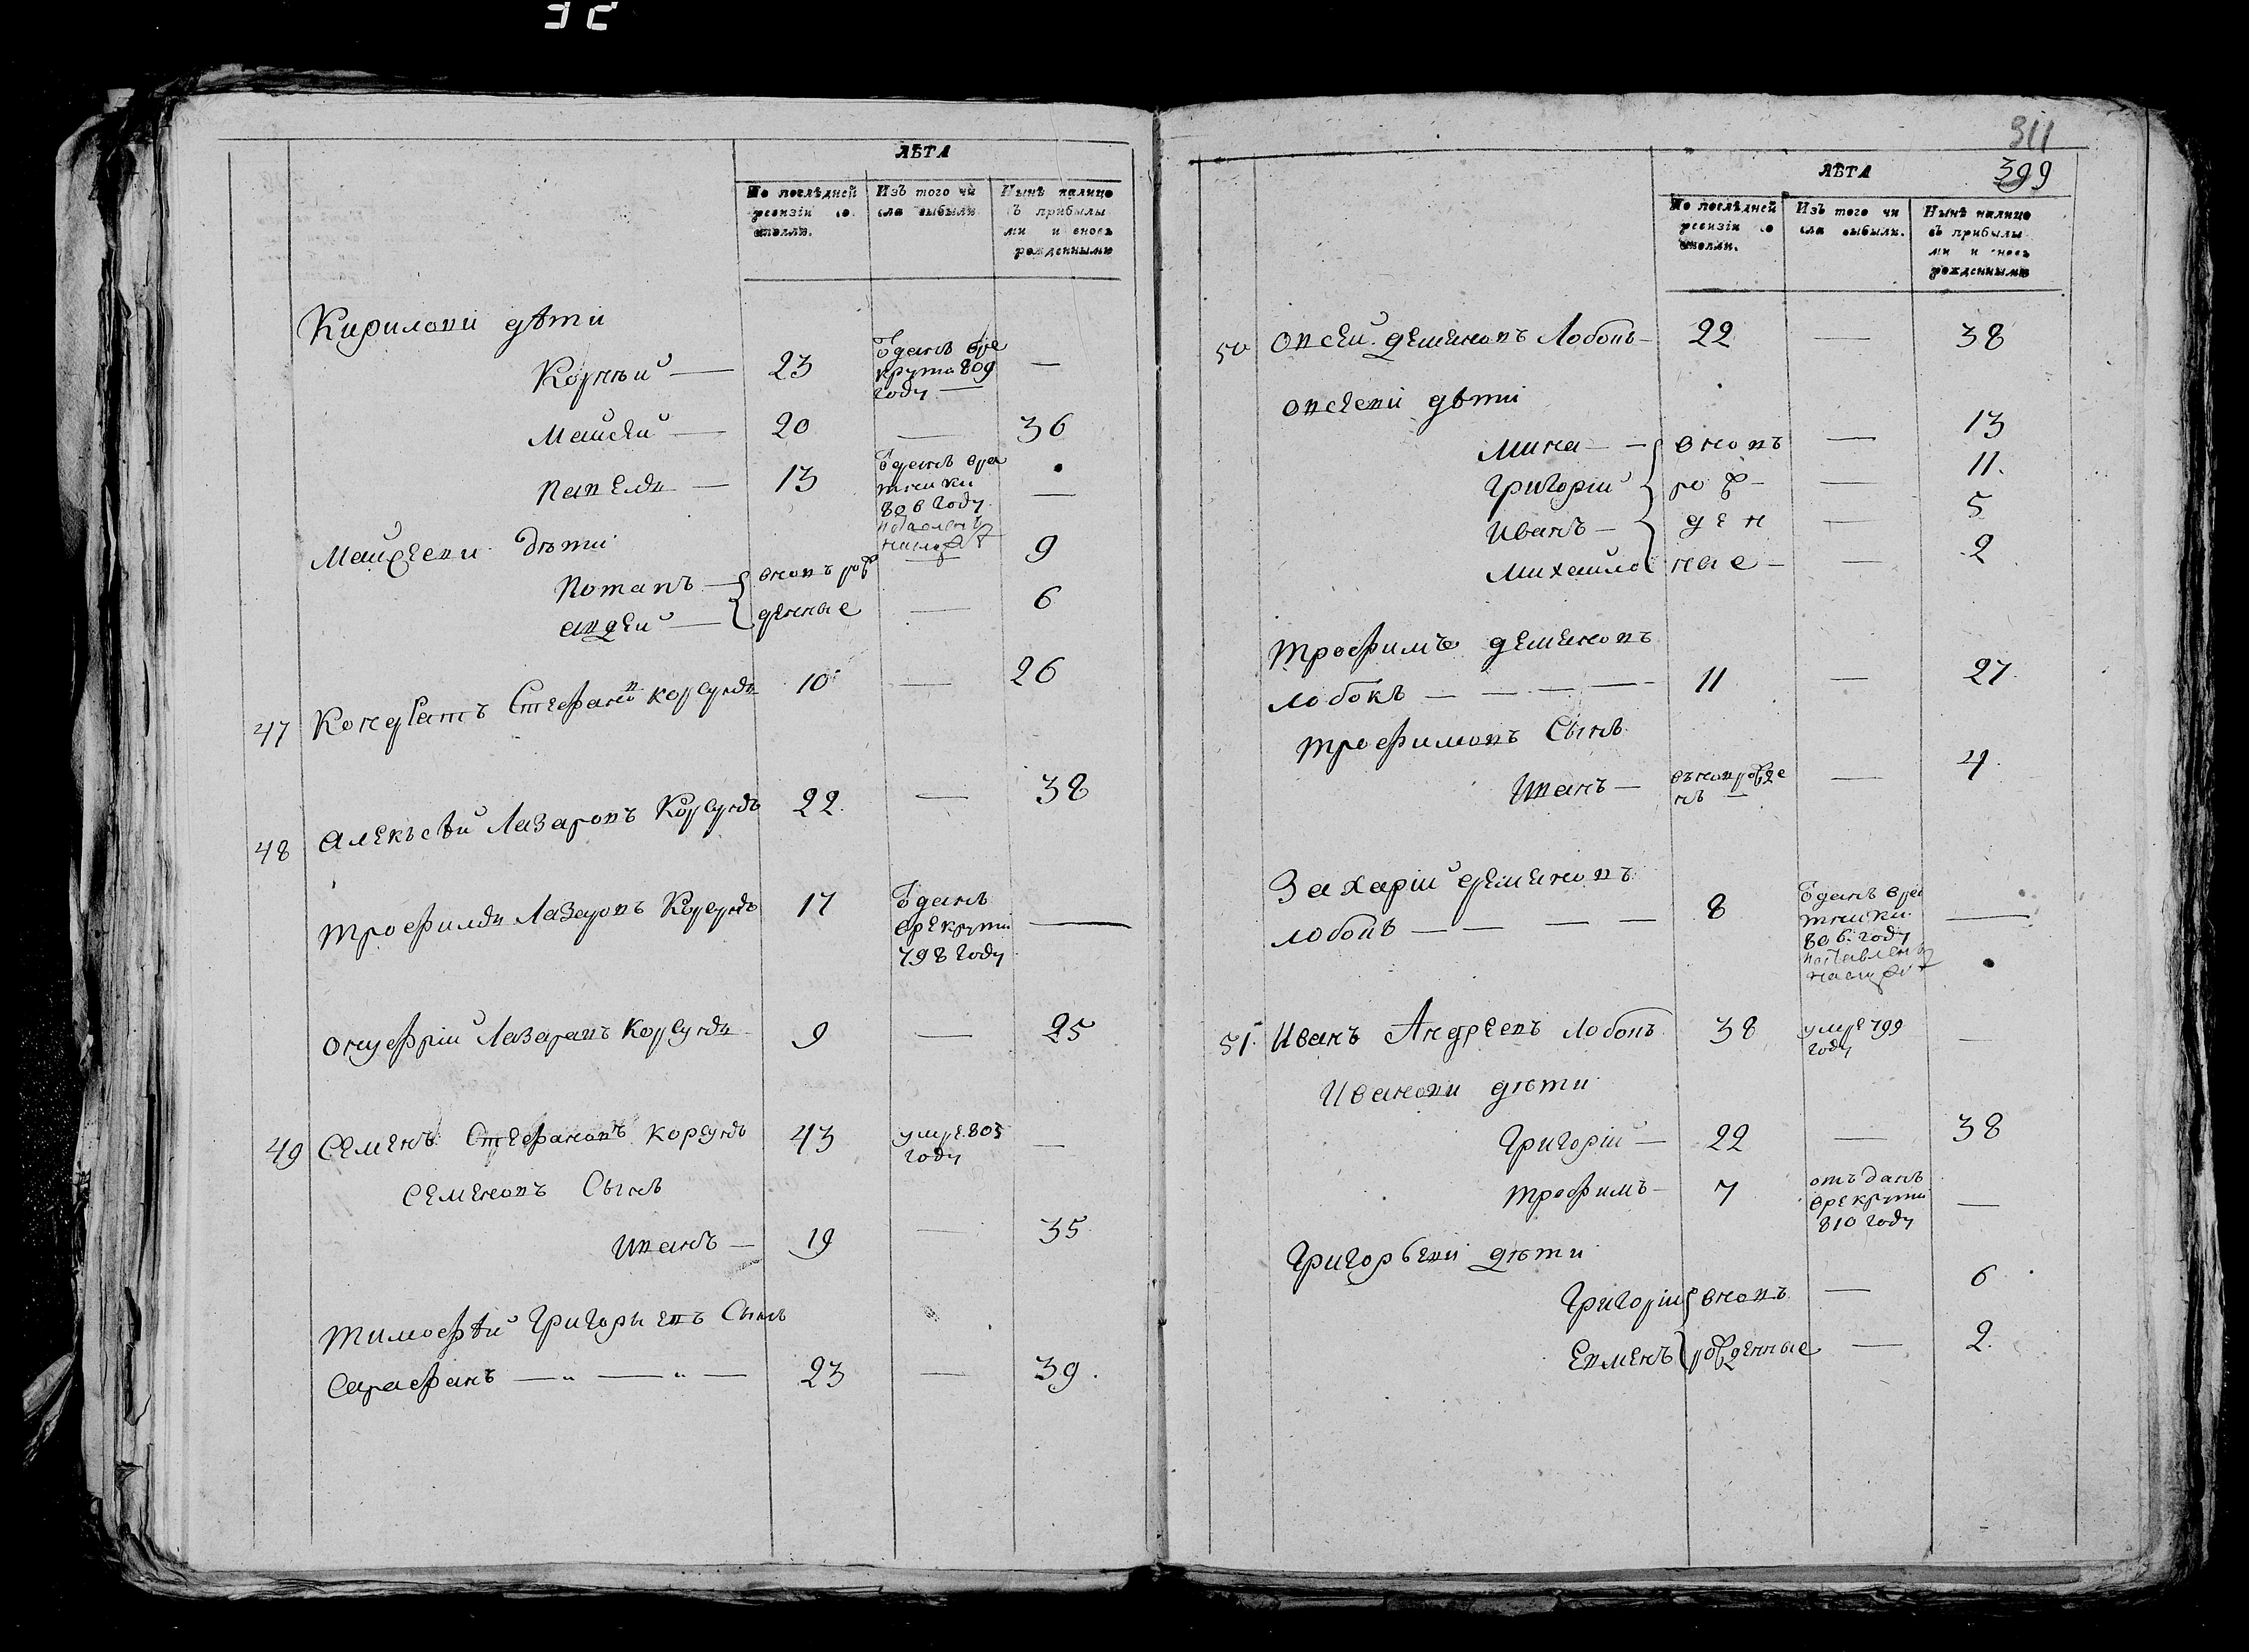 ЛѢТА
По послѣдней ревизіи со стояли.
Изъ того чи сла выбыли.
Нынѣ налицо съ прибылы ми и вновь рожденными
Кирилови дѣти
Корнѣй — 23 Ѿданъ вре
крута 809
году —
—
Мацѣи — 20 — 36
13 Ѿданъ вра
тники
806 году
—
дѣти
Потапъ — вновъ рож — 9
денные — 6
47 Кондратъ Стефановъ Корсунъ 10 — 26
48 Алекъсѣй Лазаровъ Корсунъ 22. — 38
Трофимъ Лазаровъ Корсунъ 17 Ѿданъ
врекруты
798 году
—
Онуфрій Лазаровъ Корсунъ 9 — 25
49 Семенъ Стефановъ Корсунъ 43 умре 805
году
—
Семеновъ Сынъ
Иванъ — 19 — 35
Тимофѣй Григорьевъ Сынъ
Сарафанъ — „ — „ — 23 — 39.
311
399
ЛѢТА
По послѣдней ревизіи со стояли.
Изъ того чи сла выбыли.
Нынѣ налицо съ прибылы ми и вновь рожденными
50 Овсей Деменовъ Лобовъ — 22 — 38
Овсееви дѣти
Мина — вновъ — 13
Григорій рож — 11.
Иванъ — ден — 5
Михайло ные — 2
Трофимъ Деменовъ
Лобовъ — — — — 11 — 27
Трофимовъ Сынъ
Иванъ — въновъ рожде
нъ —
— 4.
Захарій Деменовъ
Лобовъ — — — 8 Ѿданъ вра
тники
806. году
—
51. Иванъ Андреевъ Лобовъ 38 умре 799
году
—
Иванови дѣти
Григорій — 22 — 38
Трофимъ — 7 отъданъ
врекруты
810 году
—
Григорьеви дѣти
Григорій вновъ — 6
Евменъ рожденные — 2.